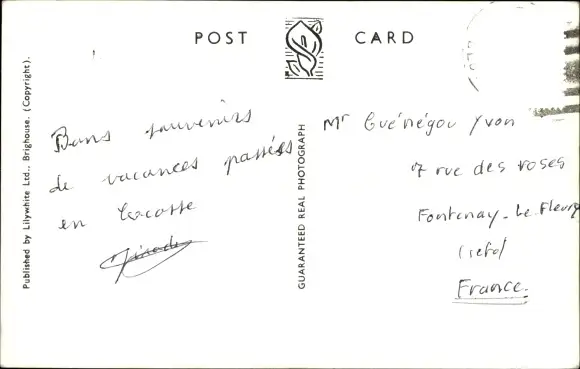 POST CARD
Published by Lilywhite Ltd., Brighouse. (Copyright).
Bons souvenirs
de vacances passées
en Ecosse
GUARANTEED REAL PHOTOGRAPH
Mr Guénégou Yvon
7 rue des roses
Fontenay-Le-Fleury
France.